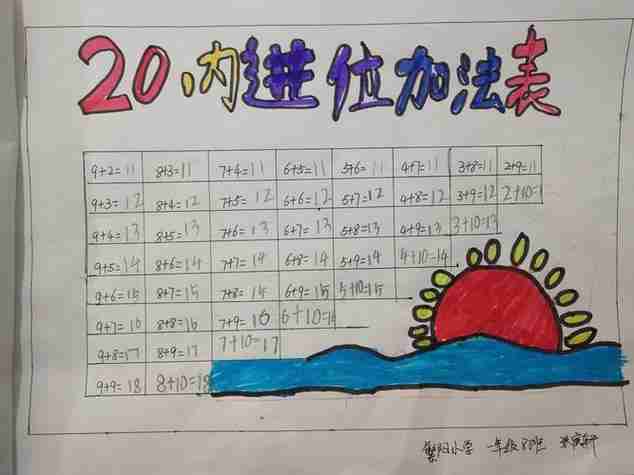 20内进位加法表
9+2=11 8+3=11 7+4=11 6+5=11 5+6=11 4+7=11 3+8=11 2+9=11
9+3=12 8+4=12 7+5=12 6+6=12 5+7=12 4+8=12 3+9=12 2+10=1
9+4=13 8+5=13 7+6=13 6+7=13 5+8=13 4+9=13 3+10=13
9+5=14 8+6=14 7+7=14 6+8=14 5+9=14 4+10=14
9+6=15 8+7=15 7+8=15 6+9=15 5+10=15
9+7=16 8+8=16 7+9=16 6+10=16
9+8=17 8+9=17 7+10=17
9+9=18 8+10=18
小学 一年级8班